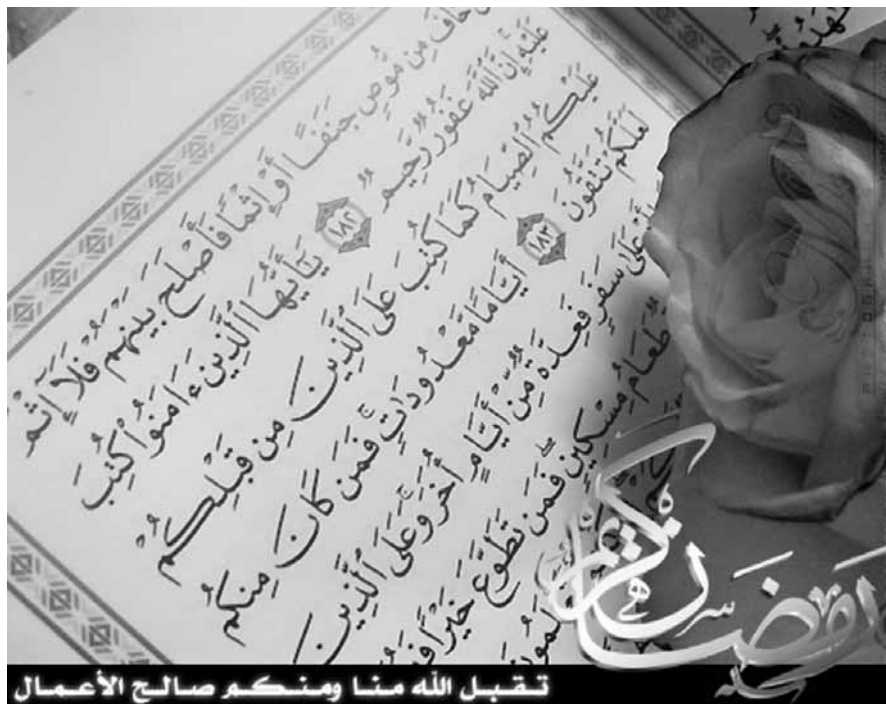 خَافَ مِن مُّوصٍ جَنَفًا أَوْ إِثْمًا فَأَصْلَحَ بَيْنَهُمْ فَلَا إِثْمَ
عَلَيْهِ إِنَّ اللَّهَ غَفُورٌ رَّحِيمٌ ١٨٢ يَٰأَيُّهَا الَّذِينَ ءَامَنُوا كُتِبَ
عَلَيْكُمُ الصِّيَامُ كَمَا كُتِبَ عَلَى الَّذِينَ مِن قَبْلِكُمْ
لَعَلَّكُمْ تَتَّقُونَ ١٨٣ أَيَّامًا مَّعْدُودَاتٍ فَمَن كَانَ مِنكُم
عَلَىٰ سَفَرٍ فَعِدَّةٌ مِّنْ أَيَّامٍ أُخَرَ وَعَلَى الَّذِينَ
طَعَامُ مِسْكِينٍ فَمَن تَطَوَّعَ خَيْرًا
رمضان كريم
تقبل الله منا ومنكم صالح الأعمال